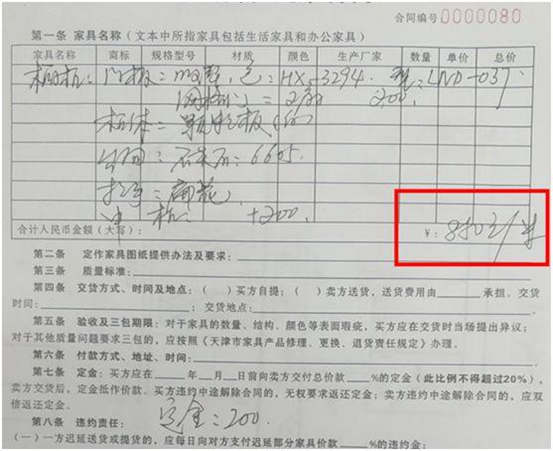 合同编号0000080
第一条 家具名称（文本中所指家具包括生活家具和办公家具）
家具名称 商标 规格型号 材质 颜色 生产厂家 数量 单价 总价
门板：色：HX-3294. 型：LND-037
200.
柜体：颗粒板
台面：石英石：6605.
拉手：
+200
合计人民币金额（大写）： ￥：850元/米
第二条 定作家具图纸提供办法及要求：
第三条 质量标准：
第四条 交货方式、时间及地点：（ ）买方自提；（ ）卖方送货，送货费用由 承担。交货
时间： ；交货地点：
第五条 验收及三包期限：对于家具的数量、结构、颜色等表面瑕疵，买方应在交货时当场提出异议；
对于其他质量问题要求三包的，应按照《天津市家具产品修理、更换、退货责任规定》办理。
第六条 付款方式、地址、时间：
第七条 定金：买方应在 年 月 日前向卖方交付总价款 %的定金（此比例不得超过20%）。
卖方交货后，定金抵作价款。买方违约中途解除合同的，无权要求返还定金；卖方违约中途解除合同的，应双
倍返还定金。
定金：200.
第八条 违约责任：
（一）一方迟延送货或提货的，应每日向对方支付迟延部分家具价款 %的违约金：